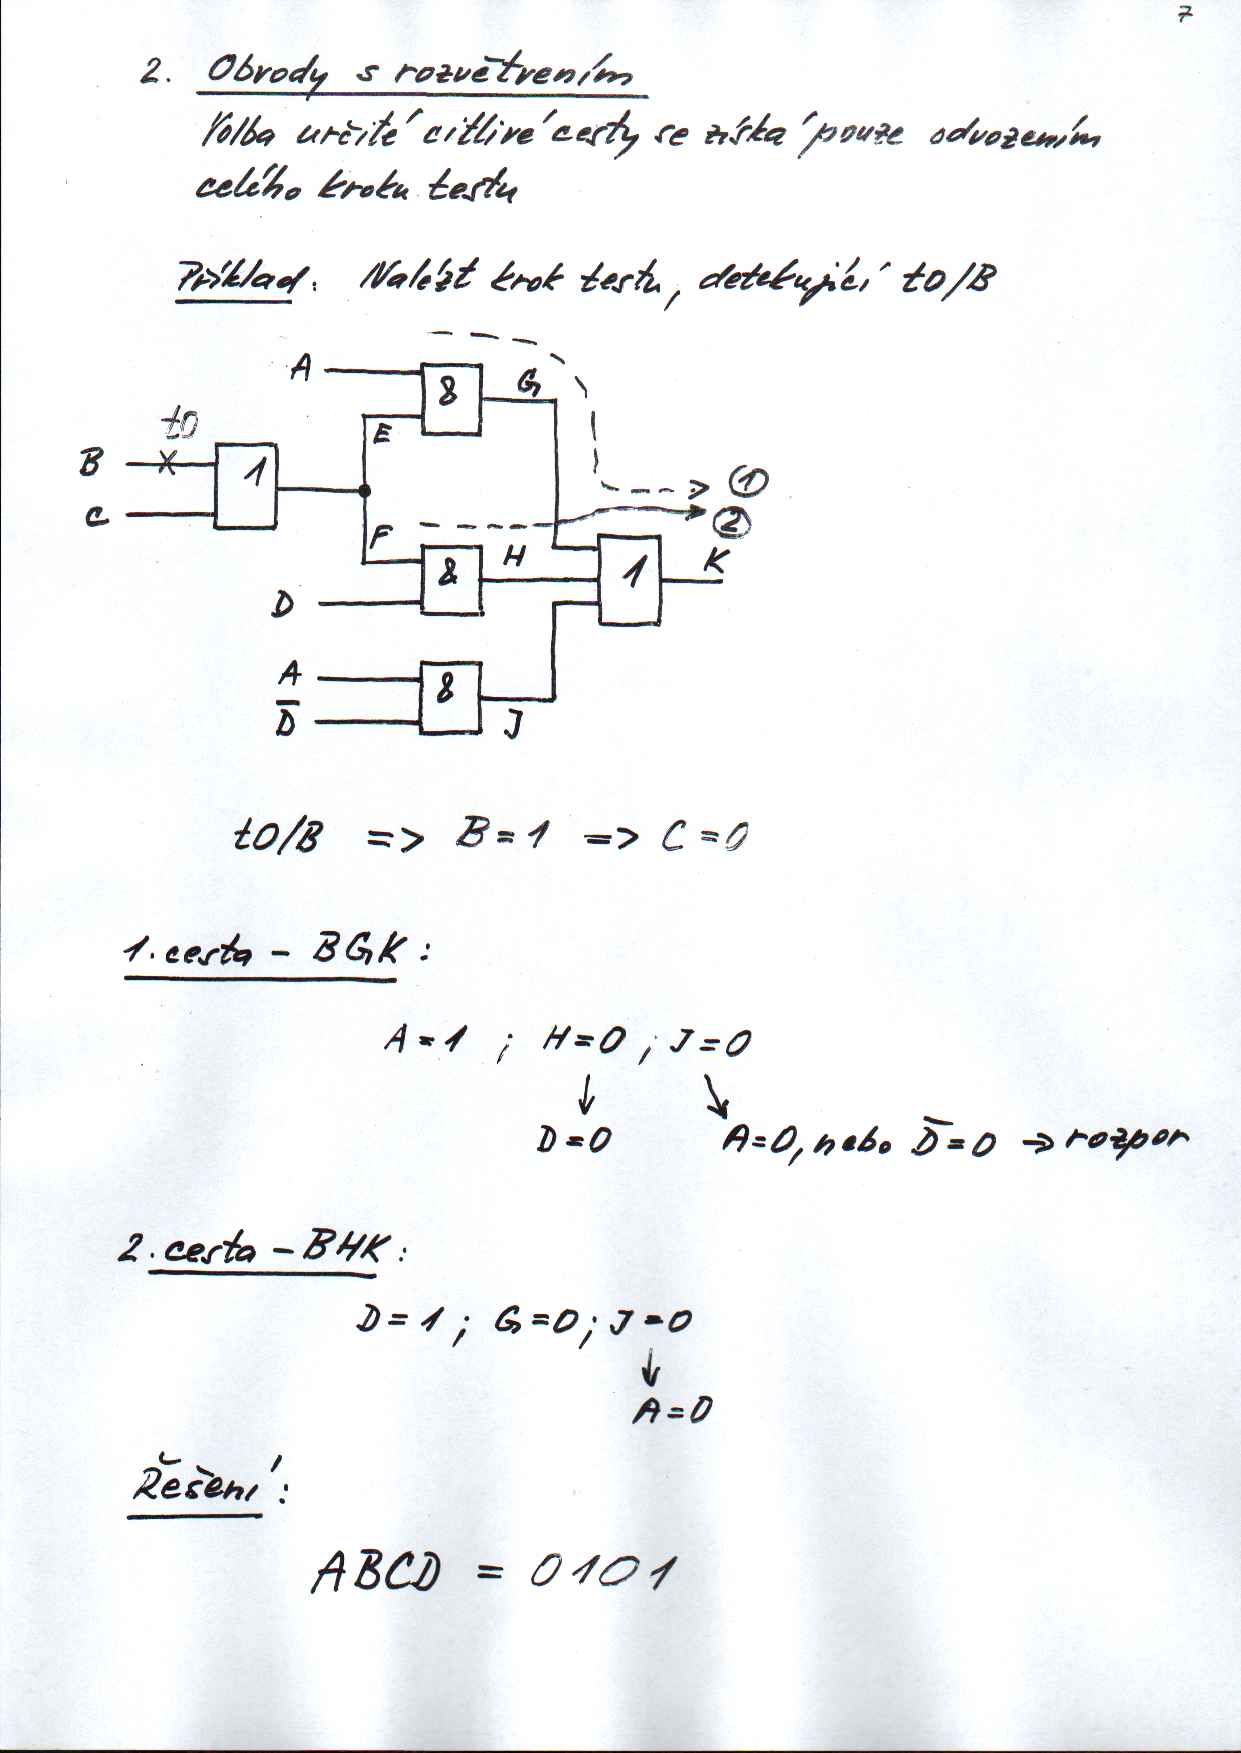 7
2. Obvody s rozvětvením
Volba určité citlivé cesty se získá pouze odvozením
celého kroku testu
Příklad: Nalézt krok testu, detekující t0/B
A
8
G
t0
E
B
1
C
1
2
F
&
H
1
K
D
A
8
D̅
J
t0/B => B=1 => C=0
1. cesta - BGK:
A=1 ; H=0 ; J=0
↓ ↘
D=0 A=0, nebo D̅=0 → rozpor
2. cesta - BHK:
D=1 ; G=0 ; J=0
↓
A=0
Řešení:
ABCD = 0101